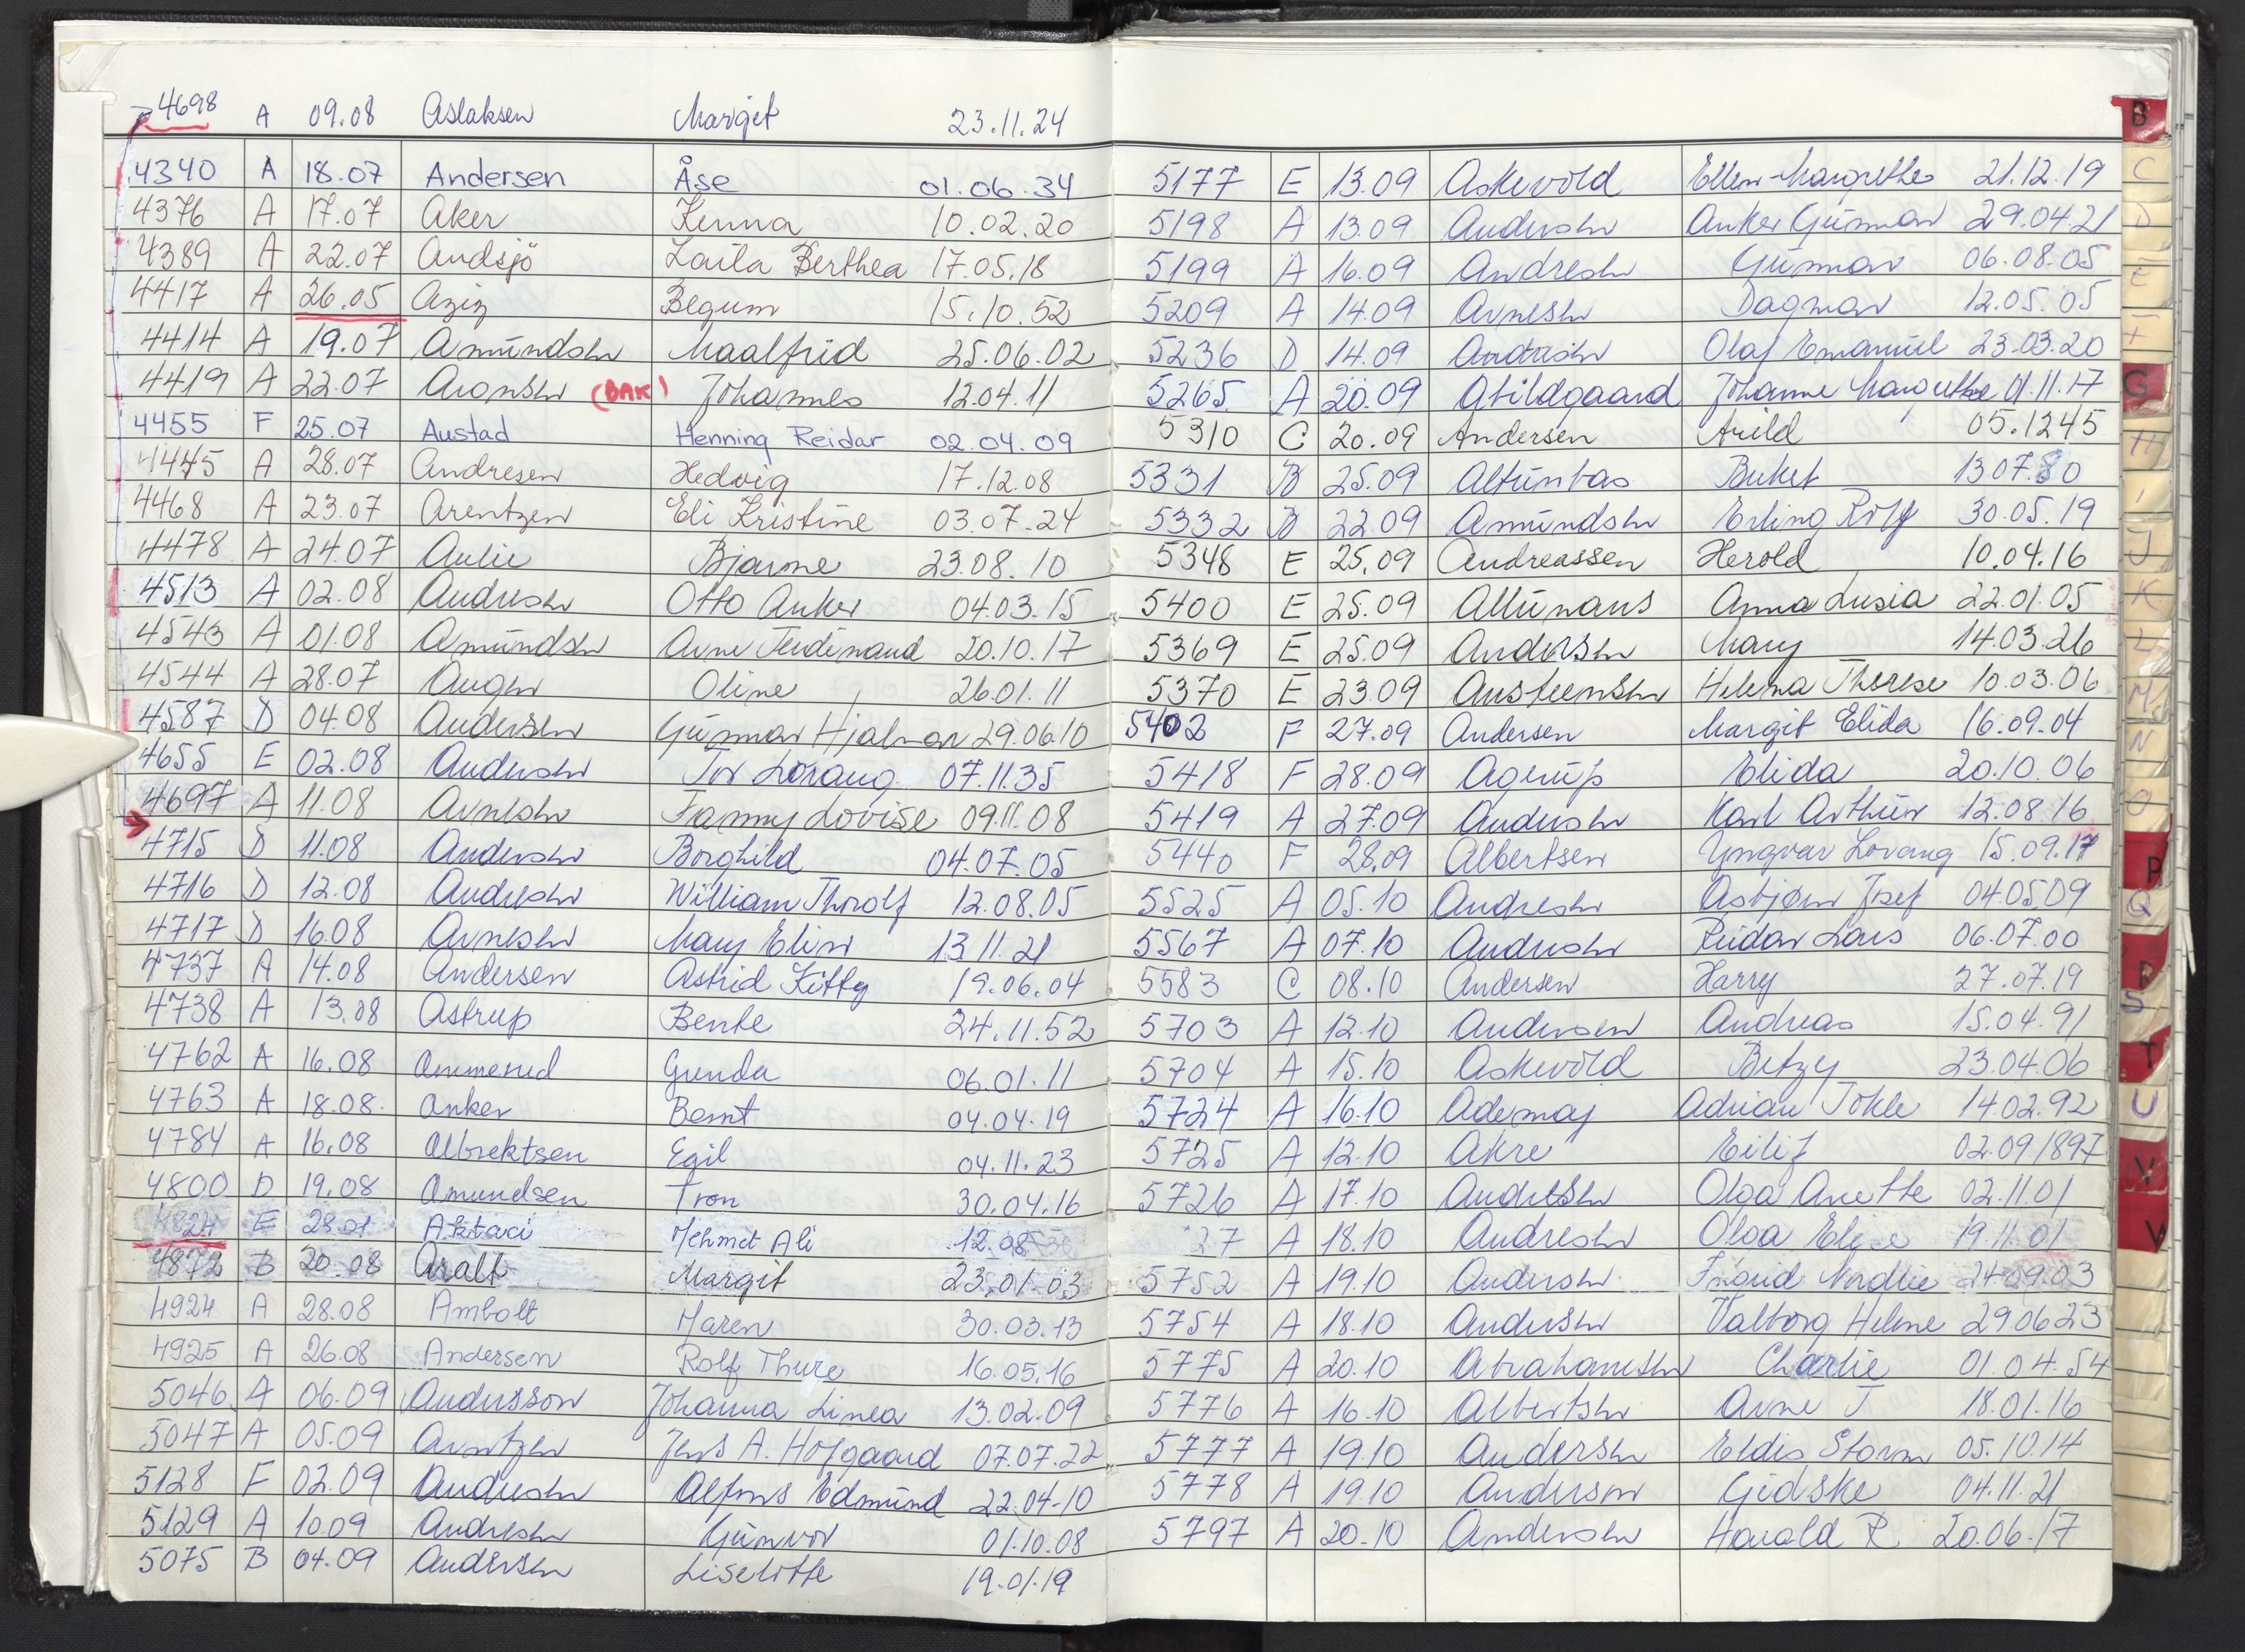 4698 A 09.08 Aslaksen Margit 23.11.24
4340 A 18.07 Andersen Åse 01.06.34
4376 A 17.07 Aker Kenna 10.02.20
4389 A 22.07 Andsjö Laila Berthea 17.05.18
4417 A 26.05 Aziz Begum 15.10.52
4414 A 19.07 Amundsen Maalfrid 25.06.02
4419 A 22.07 Aronsen (BAK) Johannes 12.04.11
4455 F 25.07 Austad Henning Reidar 02.04.09
4445 A 28.07 Andresen Hedvig 17.12.08
4468 A 23.07 Arentzen Eli Kristine 03.07.24
4478 A 24.07 Aulie Bjarne 23.08.10
4513 A 02.08 Andresen Otto Anker 04.03.15
4543 A 01.08 Amundsen Arne Ferdinand 20.10.17
4544 A 28.07 Auger Oline 26.01.11
4587 D 04.08 Andersen Gunnar Hjalmar 29.06.10
4655 E 02.08 Andersen Tor Lorang 07.11.35
4697 A 11.08 Arnesen Fanny Lovise 09.11.08
4715 D 11.08 Andersen Borghild 04.07.05
4716 D 12.08 Andresen William Thorolf 12.08.05
4717 D 16.08 Arnesen Mary Elin 13.11.21
4737 A 14.08 Andersen Astrid Kitty 19.06.04
4738 A 13.08 Astrup Bente 24.11.52
4762 A 16.08 Ammerud Gunda 06.01.11
4763 A 18.08 Anker Bernt 04.04.19
4784 A 16.08 Albrektsen Egil 04.11.23
4800 D 19.08 Amundsen Tron 30.04.16
4824 E 28.01 Aktaci Mehmet Ali 12.08
4872 B 20.08 Aralt Margit 23.01.03
4924 A 28.08 Ambolt Maren 30.03.13
4925 A 26.08 Andersen Rolf Thure 16.05.16
5046 A 06.09 Andersson Johanna Linea 13.02.09
5047 A 05.09 Arntzen Jens A. Hofgaard 07.07.22
5128 F 02.09 Andresen Alfons Edmund 22.04.10
5129 A 10.09 Andresen Gunvor 01.10.08
5075 B 04.09 Andersen Liselotte 19.01.19
5177 E 13.09 Askevold Ellen-Margrethe 21.12.19
5198 A 13.09 Andersen Anker Gunnar 29.04.21
5199 A 16.09 Andresen Gunnar 06.08.05
5209 A 14.09 Arnesen Dagmar 12.05.05
5236 D 14.09 Andersen Olaf Emanuel 23.03.20
5265 A 20.09 Abildgaard Johanne Margrethe 01.11.17
5310 C 20.09 Andersen Arild 05.1245
5331 B 25.09 Altunbas Buket 13.07.80
5332 B 22.09 Amundsen Erling Rolf 30.05.19
5348 E 25.09 Andreassen Herold 10.04.16
5400 E 25.09 Anna Lusia 22.01.05
5369 E 25.09 Andersen Mary 14.03.26
5370 E 23.09 Austeensen Helena Therese 10.03.06
5402 F 27.09 Andersen Margit Elida 16.09.04
5418 F 28.09 Agerup Elida 20.10.06
5419 A 27.09 Andersen Karl Arthur 12.08.16
5440 F 28.09 Albertsen Yngvar Lorang 15.09.17
5525 A 05.10 Andresen Asbjørn Josef 04.05.09
5567 A 07.10 Andresen Reidar Lars 06.07.00
5583 C 08.10 Andersen Harry 27.07.19
5703 A 12.10 Andersen Andreas 15.04.91
5704 A 15.10 Askevold Betzy 23.04.06
5724 A 16.10 Ademaj Adrian Tokle 14.02.92
5725 A 12.10 Akre Eilif 02.09.1897
5726 A 17.10 Andresen Olga Anette 02.11.01
27 A 18.10 Andresen Olga Elise 19.11.01
5752 A 19.10 Andersen Nordlie 24.09.03
5754 A 18.10 Andersen Valborg Helene 29.06.23
5775 A 20.10 Abrahamsen Charlie 01.04.54
5776 A 16.10 Albertsen Arne J 18.01.16
5777 A 19.10 Andersen Eldis Storm 05.10.14
5778 A 19.10 Anderson Gidske 04.11.21
5797 A 20.10 Andersen Harald R 20.06.17
B
C
D
E
F
G
H
I
J
K
L
M
N
O
P
Q
R
S
T
U
V